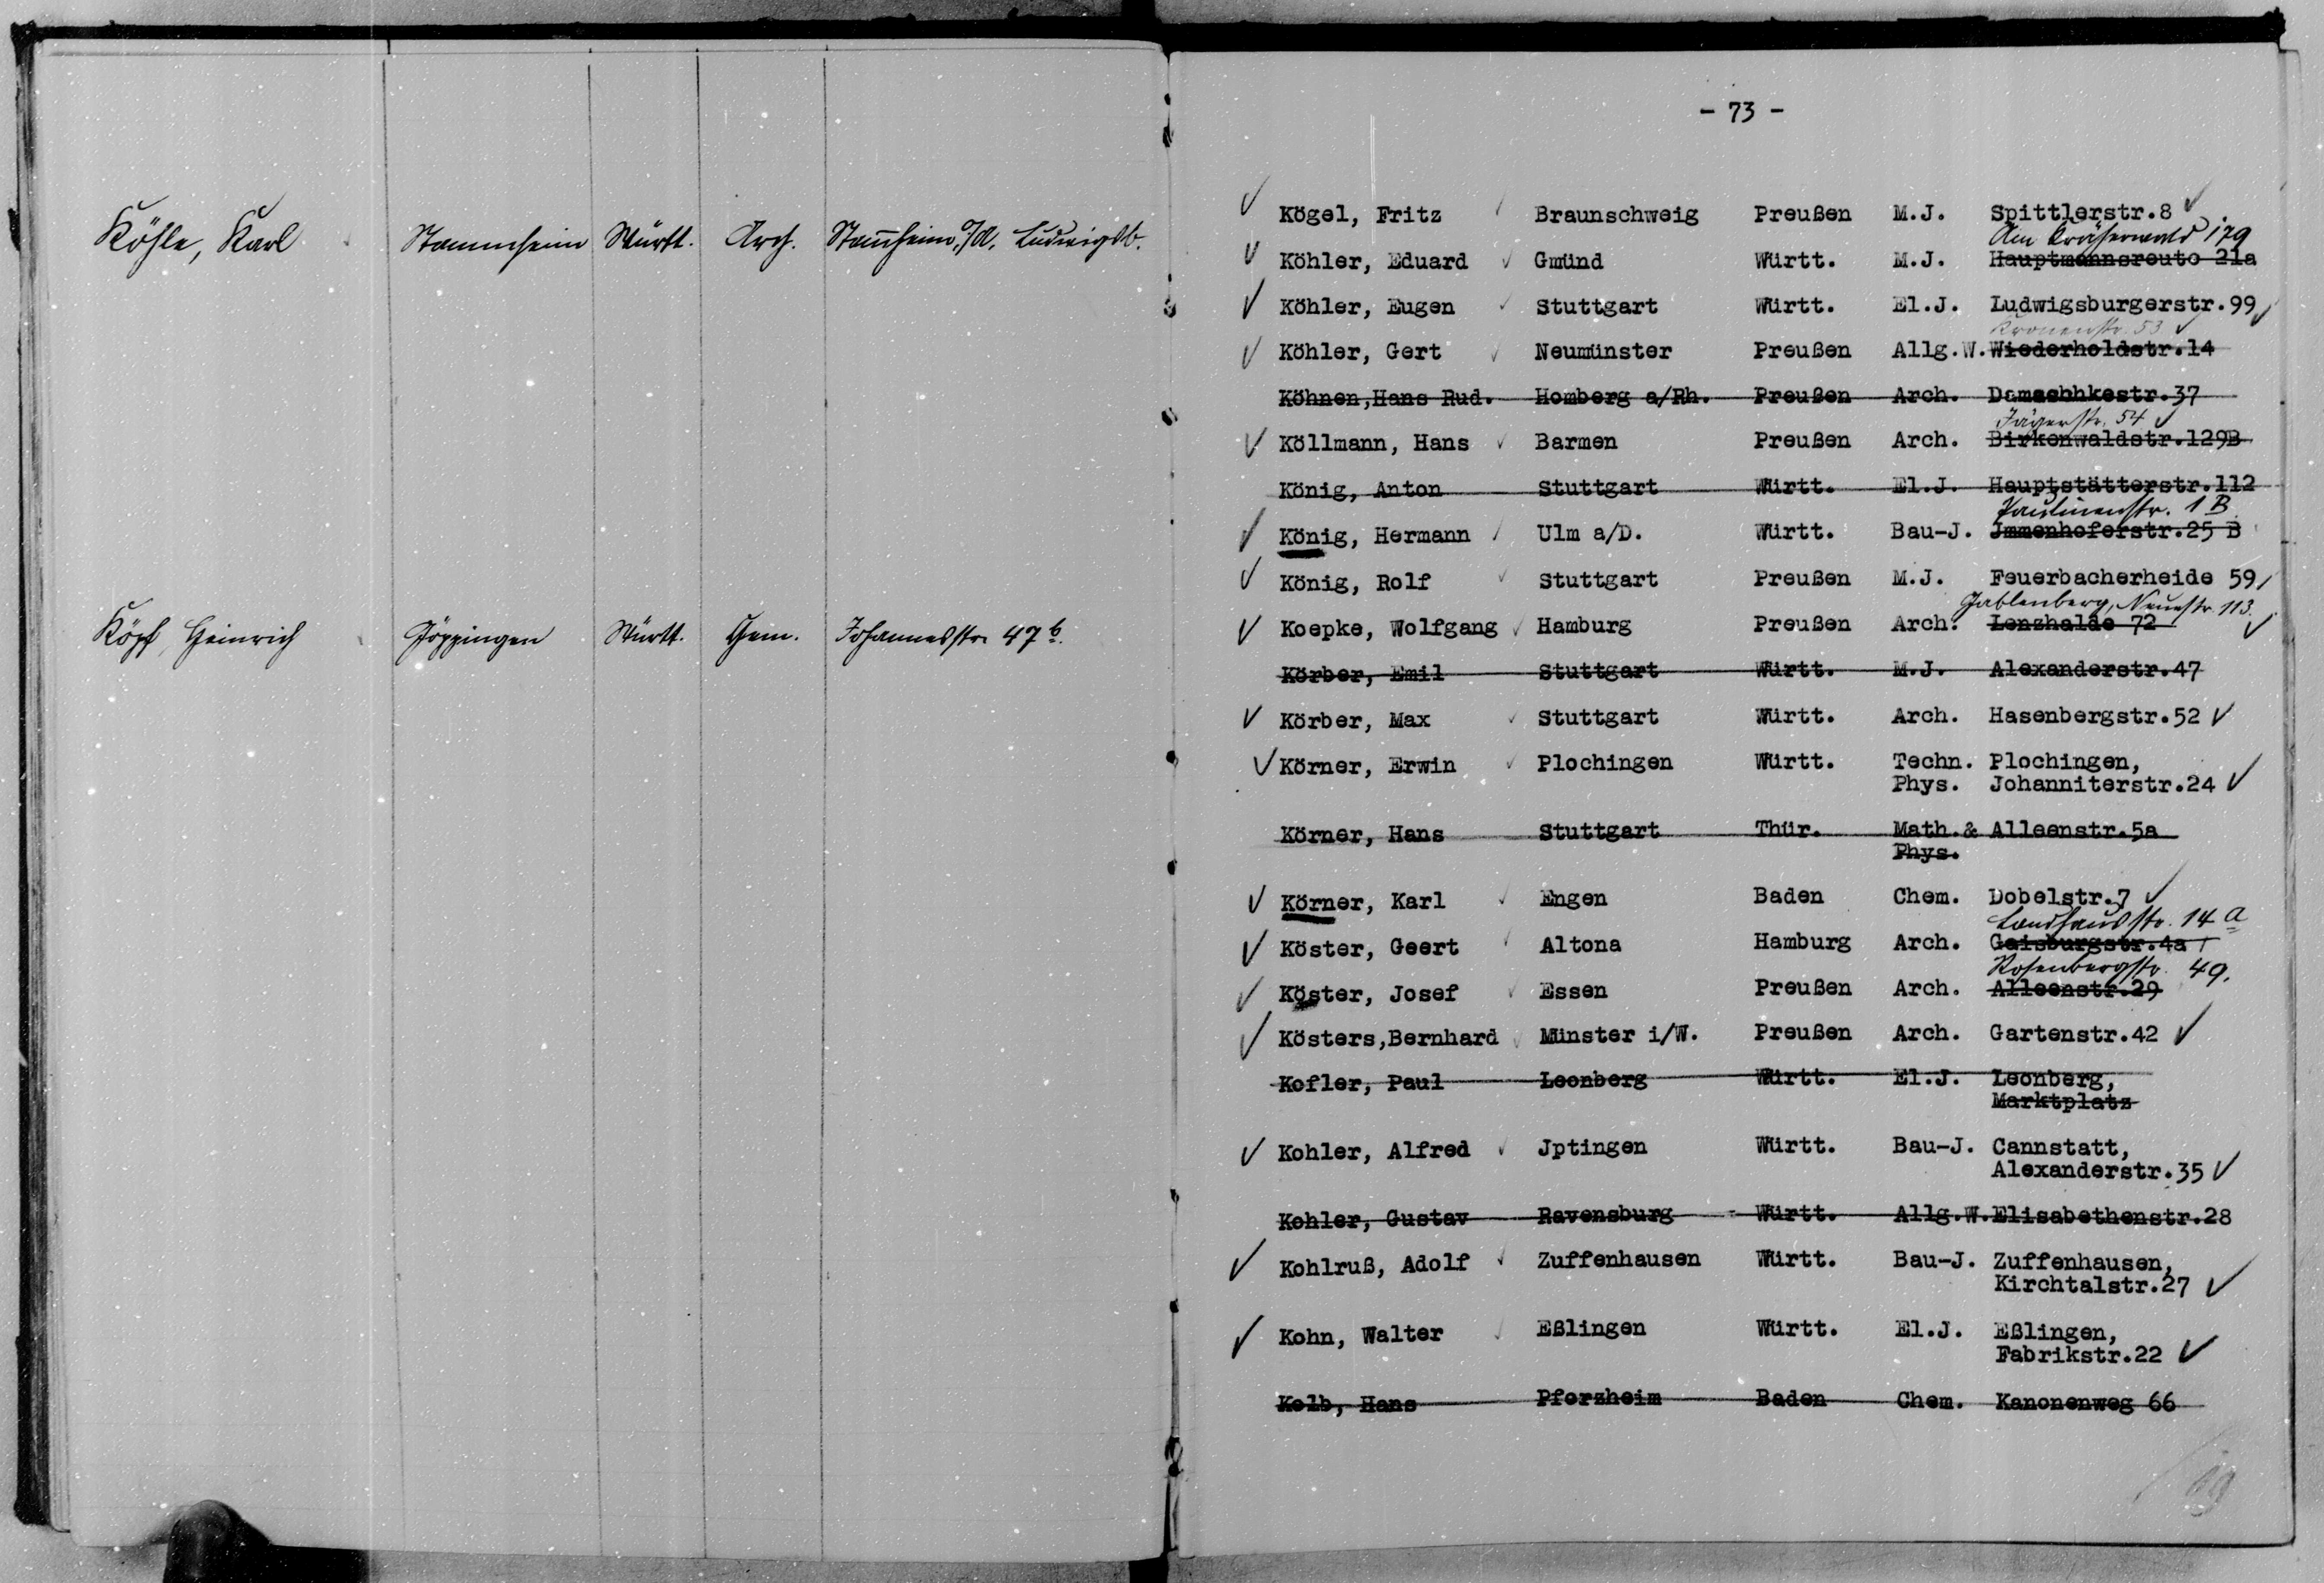 Köhle, Karl Stammheim Württ. Arch. Stammheim, O/A. Ludwigsb.
Köpf, Heinrich Göppingen Württ. Chem. Johannesstr. 47 b.
- 73 -
Kögel, Fritz Braunschweig Preußen M.J. Spittlerstr.8
Am Kräherwald 179
Köhler, Eduard Gmünd Württ. M.J. Hauptmannsreute 21a
Köhler, Eugen Stuttgart Württ. El.J. Ludwigsburgerstr.99
Kronenstr. 53
Köhler, Gert Neumünster Preußen Allg.W. Wiederholdstr.14
Köhnen,Hans Rud. Homberg a/Rh. Preußen Arch. Damachhkestr.37
Jägerstr. 54
Köllmann, Hans Barmen Preußen Arch. Birkenwaldstr.129B
König, Anton Stuttgart Württ. El.J. Hauptstätterstr.112
Paulinenstr. 1 B
König, Hermann Ulm a/D. Württ. Bau-J. Jmmenhoferstr.25 B
König, Rolf Stuttgart Preußen M.J. Feuerbacherheide 59
Gablenberg, Neuestr. 113.
Koepke, Wolfgang Hamburg Preußen Arch. Lenzhalde 72
Körber, Emil Stuttgart Württ. M.J. Alexanderstr.47
Körber, Max Stuttgart Württ. Arch. Hasenbergstr.52
Körner, Erwin Plochingen Württ. Techn. Plochingen,
Phys. Johanniterstr.24
Körner, Hans Stuttgart Thür. Math.& Alleenstr.5a
Phys.
Körner, Karl Engen Baden Chem. Dobelstr.7
Landhausstr. 14 a
Köster, Geert Altona Hamburg Arch. Gaisburgstr.4a
Rosenbergstr. 49.
Köster, Josef Essen Preußen Arch. Alleenstr.29
Kösters,Bernhard Münster i/W. Preußen Arch. Gartenstr.42
Kofler, Paul Leonberg Württ. El.J. Leonberg,
Marktplatz
Kohler, Alfred Jptingen Württ. Bau-J. Cannstatt,
Alexanderstr.35
Kohler, Gustav Ravensburg Württ. Allg.W. Elisabethenstr.28
Kohlruß, Adolf Zuffenhausen Württ. Bau-J. Zuffenhausen,
Kirchtalstr.27
Kohn, Walter Eßlingen Württ. El.J. Eßlingen,
Fabrikstr.22
Kolb, Hans Pforzheim Baden Chem. Kanonenweg 66